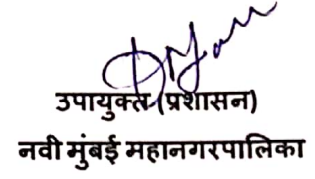 उपायुक्त (प्रशासन)
नवी मुंबई महानगरपालिका